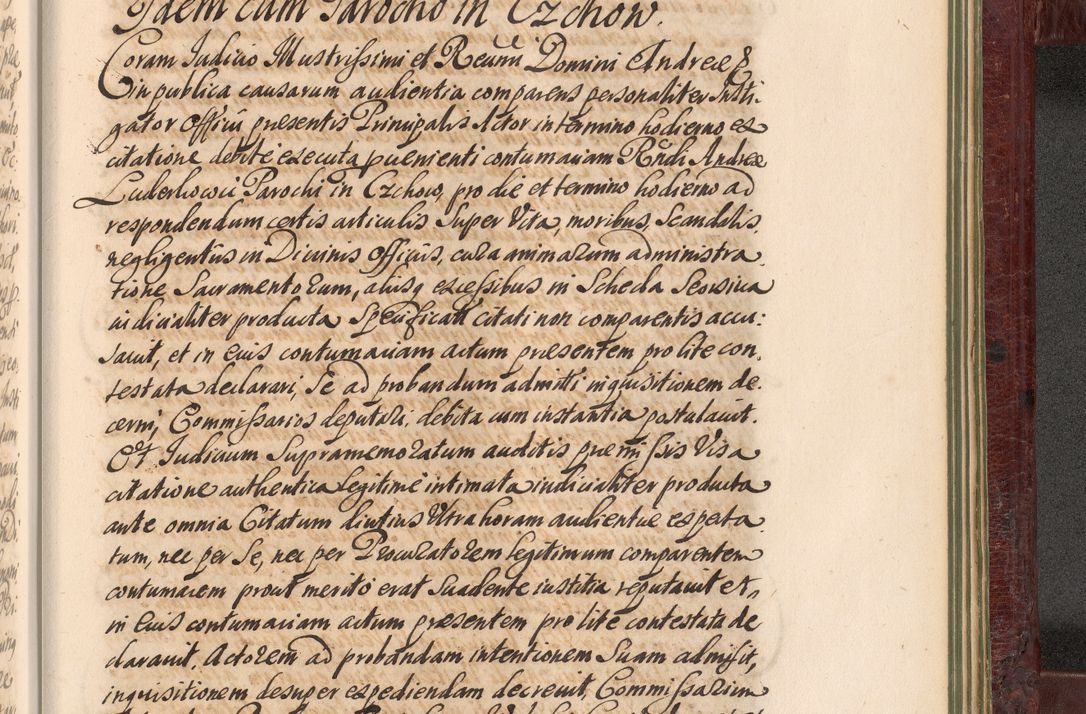 Idem cum Parocho in Czchow.
Coram Iudicio Illustrissimi et Reverendissimi Domini Andreæ &
in publica causarum audientia comparens personaliter Insti-
gator Officii præsentis Principalis Actor in termino hodierno ex
citatione debite executa pvenienti contumaciam Rndi Andreæ
Parochi in Czchow, pro die et termino hodierno ad
respondendum certis articulis super Vita, moribus, Scandalis,
negligentiis in Divinis Officiis, cura animarum administra
tione Sacramentorum, aliisq excessibus in Scheda Seorsiva
iudicialiter producta Specificatis citati non comparentis accu:
savit, et in Eius contumaciam actum præsentem pro lite con,
testata declarari, Se ad probandum admitti inquisitionem de,
cerni, Commissarios deputari, debita cum instantia postulavit.
Et Iudicium Supramemoratum auditis præmissis Visa
citatione authentica legitime intimata iudicialiter producta
ante omnia Citatum diutius Ultra horam audientiæ expecta
tum, nec per Se, nec per Procuratorem legitimum comparentem
contumacem prout merito erat Suadente iustitia reputavit et,
in Eius contumaciam actum præsentem pro lite contestata de
claravit. Actorem ad probandam intentionem Suam admisit,
inquisitionem desuper expediendam decrevit, Commissarium